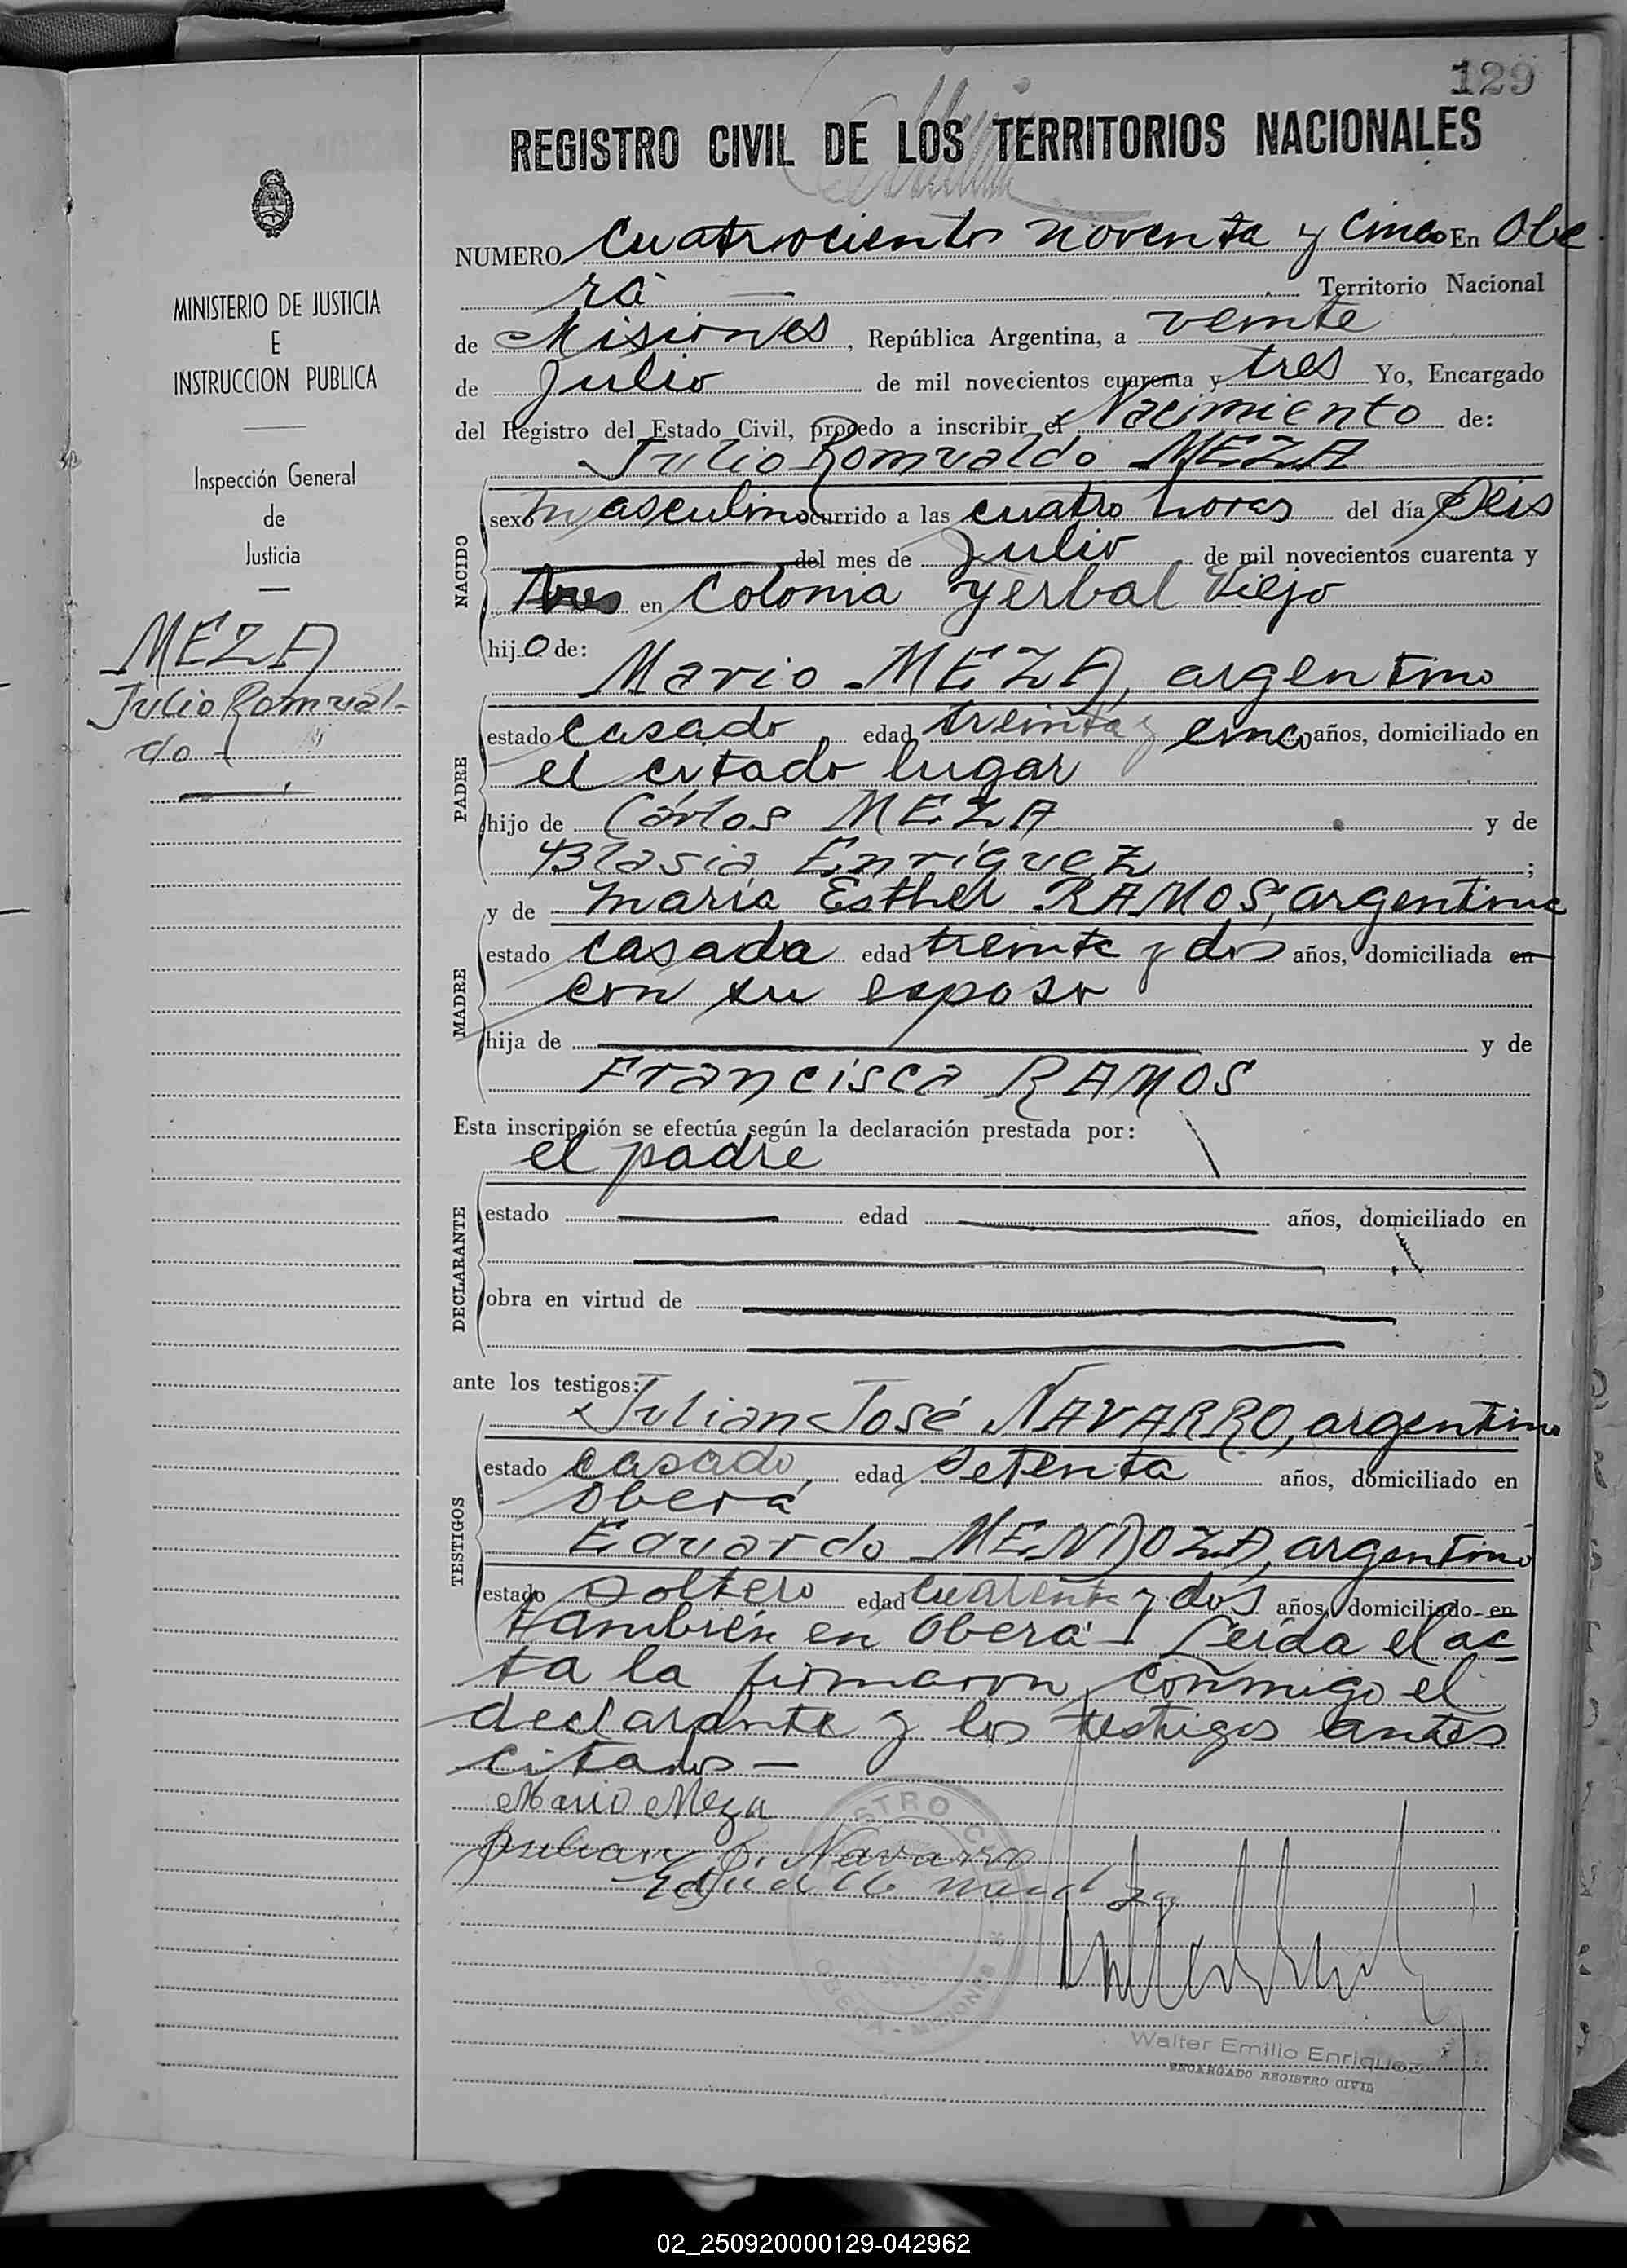 129
REGISTRO CIVIL DE LOS TERRITORIOS NACIONALES
MINISTERIO DE JUSTICIA
E
INSTRUCCION PUBLICA
Inspección General
de
Justicia
MEZA
Julio Romual-
do
NUMERO cuatrocientos noventa y cinco En Obe
rá Territorio Nacional
de Misiones, República Argentina, a veinte
de Julio de mil novecientos cuarenta y tres Yo, Encargado
del Registro del Estado Civil, procedo a inscribir el Nacimiento de:
Julio Romualdo MEZA
NACIDO
sexo masculino ocurrido a las cuatro horas del día seis
del mes de Julio de mil novecientos cuarenta y
tres en Colonia Yerbal Viejo
hijo de:
Mario MEZA, argentino
PADRE
estado casado, edad treinta y cinco años, domiciliado en
el citado lugar
hijo de Cárlos MEZA y de
Blasia Enríquez;
y de maría Esther RAMOS, argentina
MADRE
estado casada edad treinta y dos años, domiciliada en
con su esposo
hija de y de
Francisca RAMOS
Esta inscripción se efectúa según la declaración prestada por:
el padre
DECLARANTE
estado edad años, domiciliado en
obra en virtud de
ante los testigos:
Julian José NAVARRO, argentino
TESTIGOS
estado casado, edad setenta años, domiciliado en
Oberá
Eduardo MENDOZA, argentino
estado soltero edad cuarenta y dos años, domiciliado en
también en Oberá - Leída el ac
ta la firmaron conmigo el
declarante y los testigos antes
citados -
Mario Meza
Julian J. Navarro
OBERA - MISIONES
Walter Emilio Enriquez
ENCARGADO REGISTRO CIVIL
02_250920000129-042962